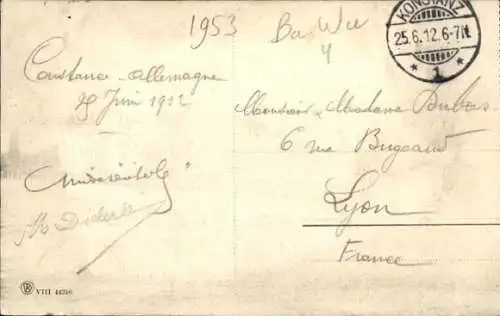 1953
Ba Wü
4
KONSTANZ
25.6.12.6-7N.
* 1 *
Constance - Allemagne
25 Juin 1912
Monsieur & Madame Dubois
6 rue Bugeaud
Lyon
France
VIII